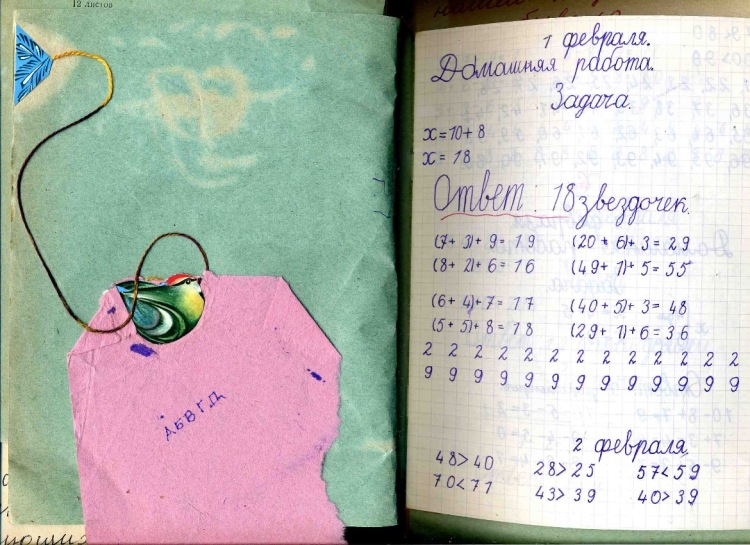 12 листов
АБВГД
1 февраля.
Домашняя работа.
Задача
x=10+8
x=18
Ответ: 18 звездочек.
(7+3)+9=19 (20+6)+3=29
(8+2)+6=16 (49+1)+5=55
(6+4)+7=17 (40+5)+3=48
(5+5)+8=18 (29+1)+6=36
2 2 2 2 2 2 2 2 2 2 2 2 2
9 9 9 9 9 9 9 9 9 9 9 9 9
2 февраля.
48>40 28>25 57<59
70<71 43>39 40>39